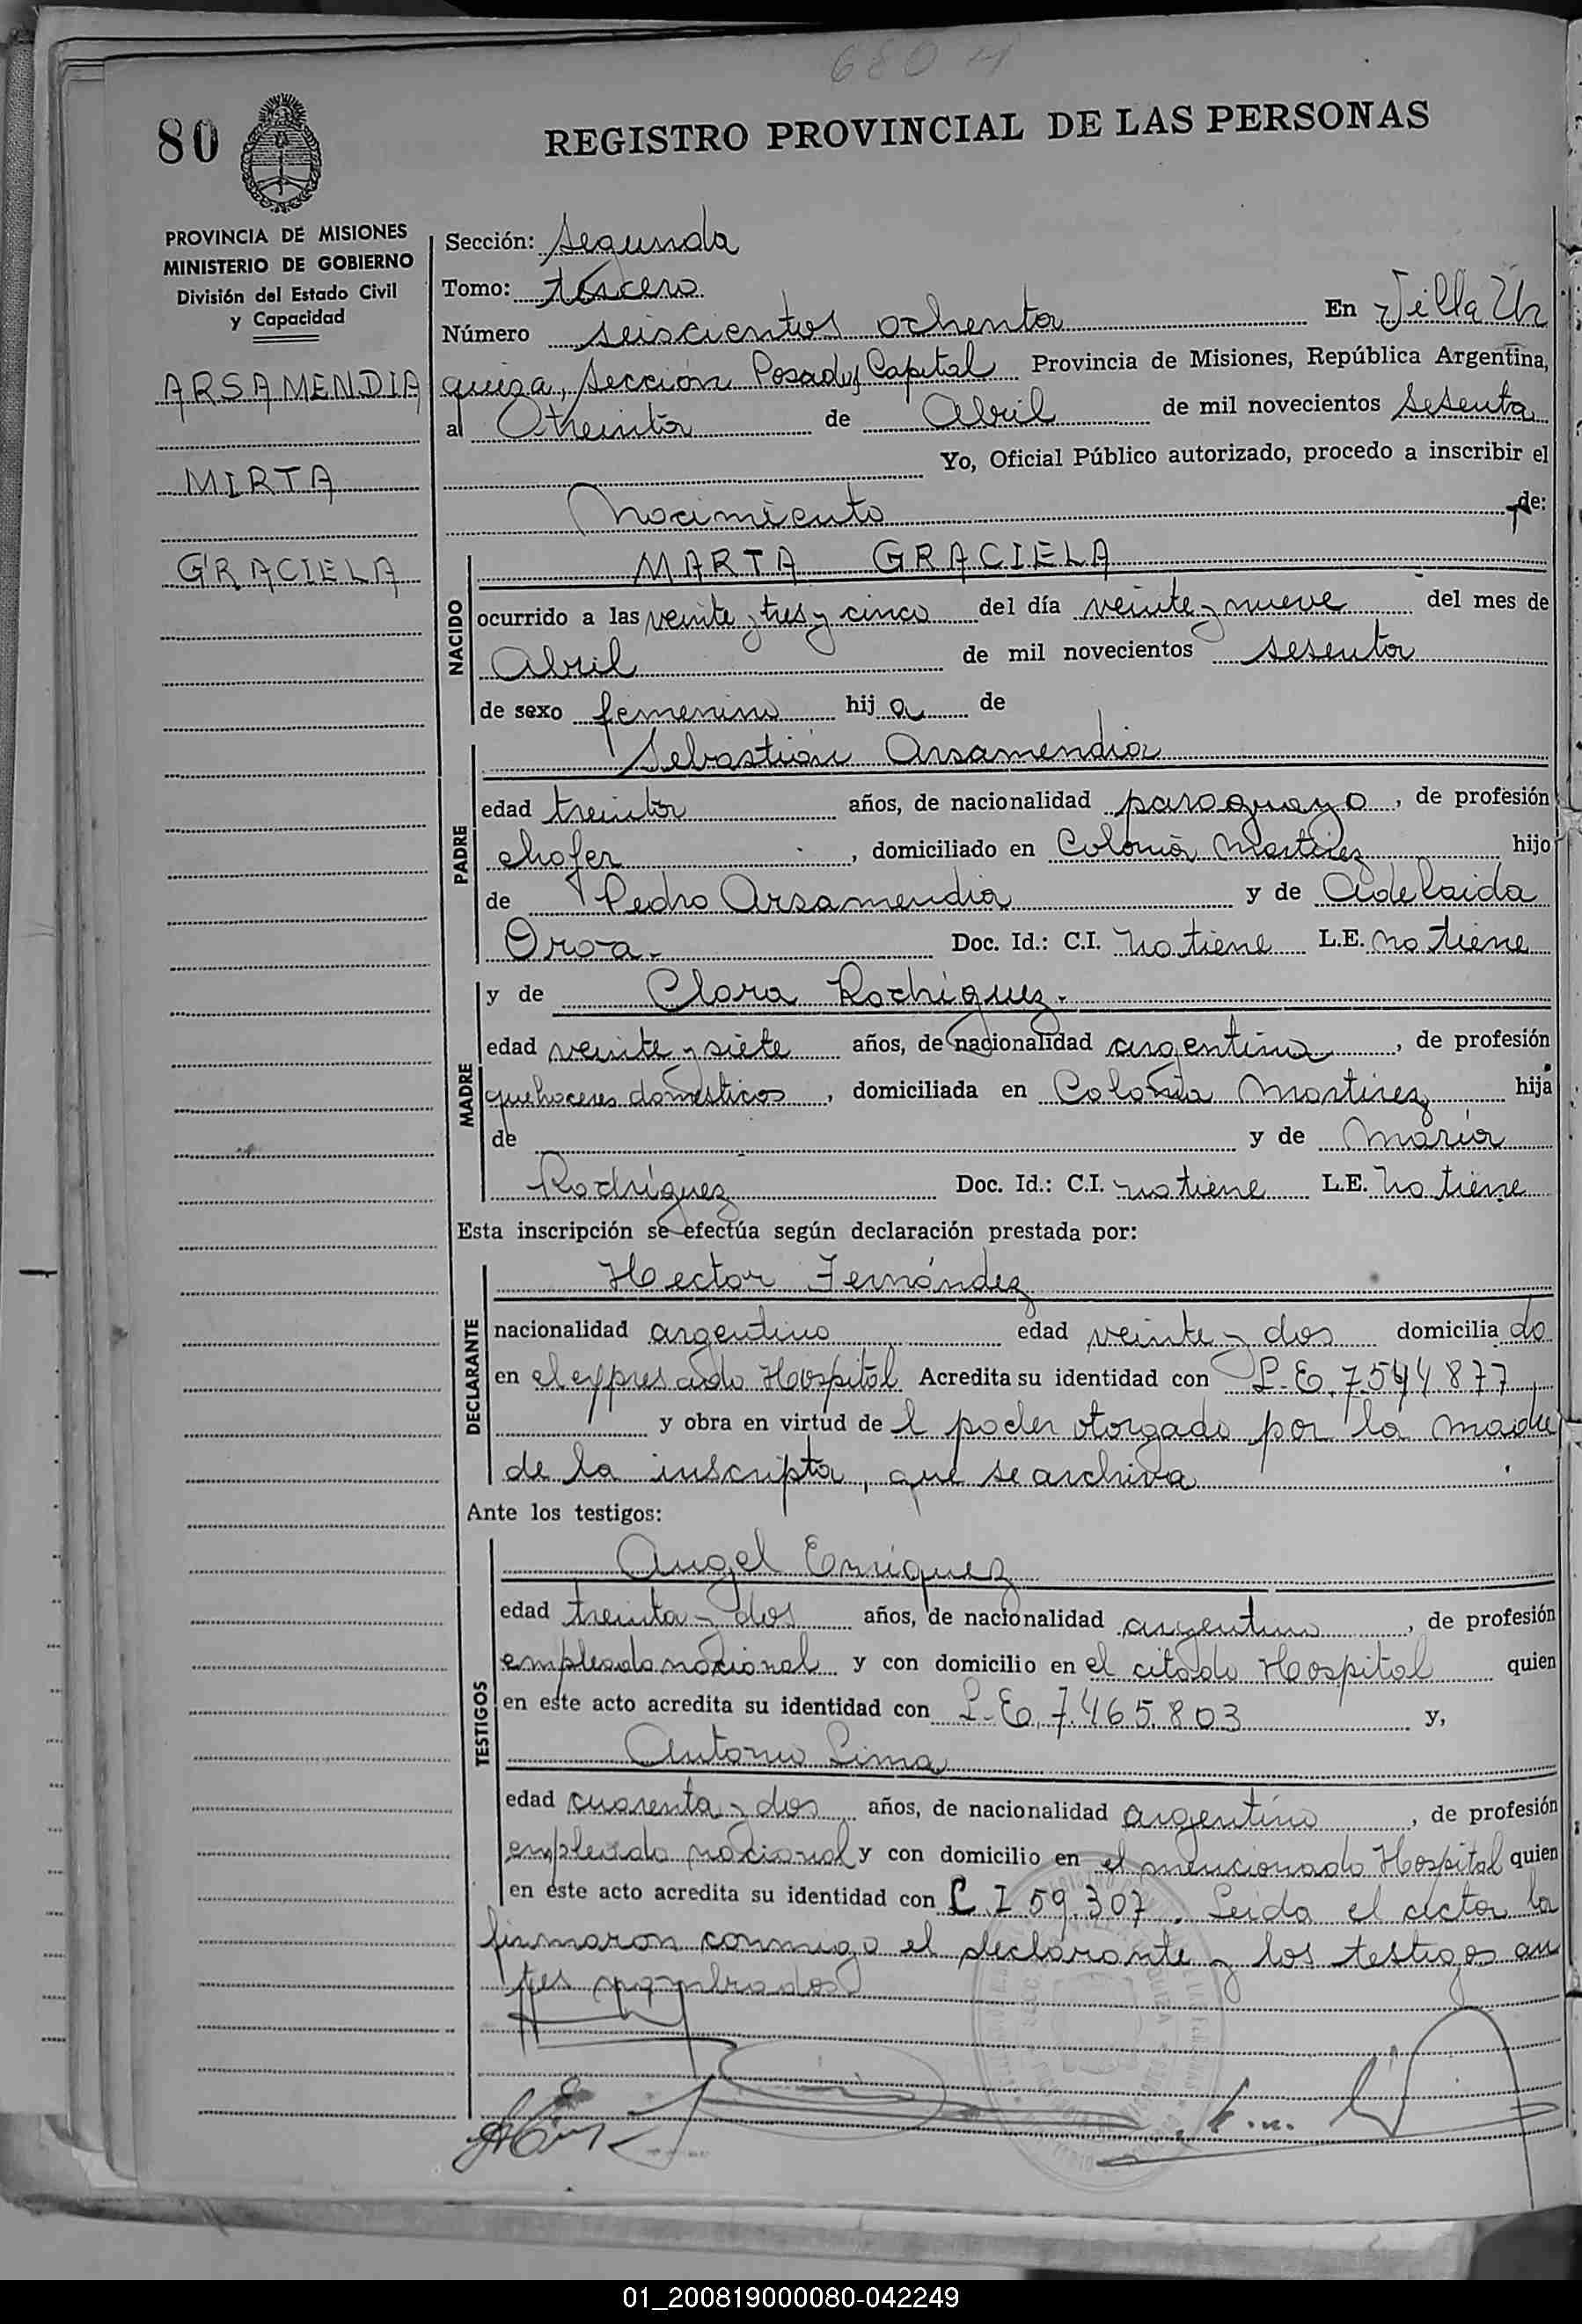 680 M
80
REGISTRO PROVINCIAL DE LAS PERSONAS
PROVINCIA DE MISIONES
MINISTERIO DE GOBIERNO
División del Estado Civil
y Capacidad
ARSAMENDIA
MIRTA
GRACIELA
Sección: Segunda
Tomo: tercero
Número seiscientos ochenta En Villa Ur
quiza, Sección Posadas Capital Provincia de Misiones, República Argentina,
a treinta de Abril de mil novecientos sesenta
Yo, Oficial Público autorizado, procedo a inscribir el
Nacimiento de:
NACIDO
MARTA GRACIELA
ocurrido a las veinte y tres y cinco del día veinte y nueve del mes de
Abril de mil novecientos sesenta
de sexo femenino hija de
PADRE
Sebastián Arsamendia
edad treinta años, de nacionalidad paraguayo, de profesión
chofer, domiciliado en Colonia Martinez hijo
de Pedro Arsamendia y de Adelaida
Oroa.- Doc. Id.: C.I. No tiene L.E. No tiene
MADRE
y de Clara Rodriguez.-
edad veinte y siete años, de nacionalidad argentina, de profesión
quehaceres domésticos, domiciliada en Colonia Martinez hija
de y de María
Rodríguez Doc. Id.: C.I. no tiene L.E. No tiene
Esta inscripción se efectúa según declaración prestada por:
DECLARANTE
Hector Fernández
nacionalidad argentino edad veinte y dos domiciliado
en el expresado Hospital Acredita su identidad con L.E. 7.544.877
y obra en virtud del poder otorgado por la madre
de la inscripta, que se archiva
Ante los testigos:
TESTIGOS
Angel Enriquez
edad treinta y dos años, de nacionalidad argentino, de profesión
empleado nacional y con domicilio en el citado Hospital quien
en este acto acredita su identidad con L.E. 7.465.803 y,
Antonio Lima
edad cuarenta y dos años, de nacionalidad argentino, de profesión
empleado nacional y con domicilio en el mencionado Hospital quien
en este acto acredita su identidad con C.I 59.307. Leida el acta la
firmaron conmigo el declarante y los testigos an
tes nombrados
01_200819000080-042249